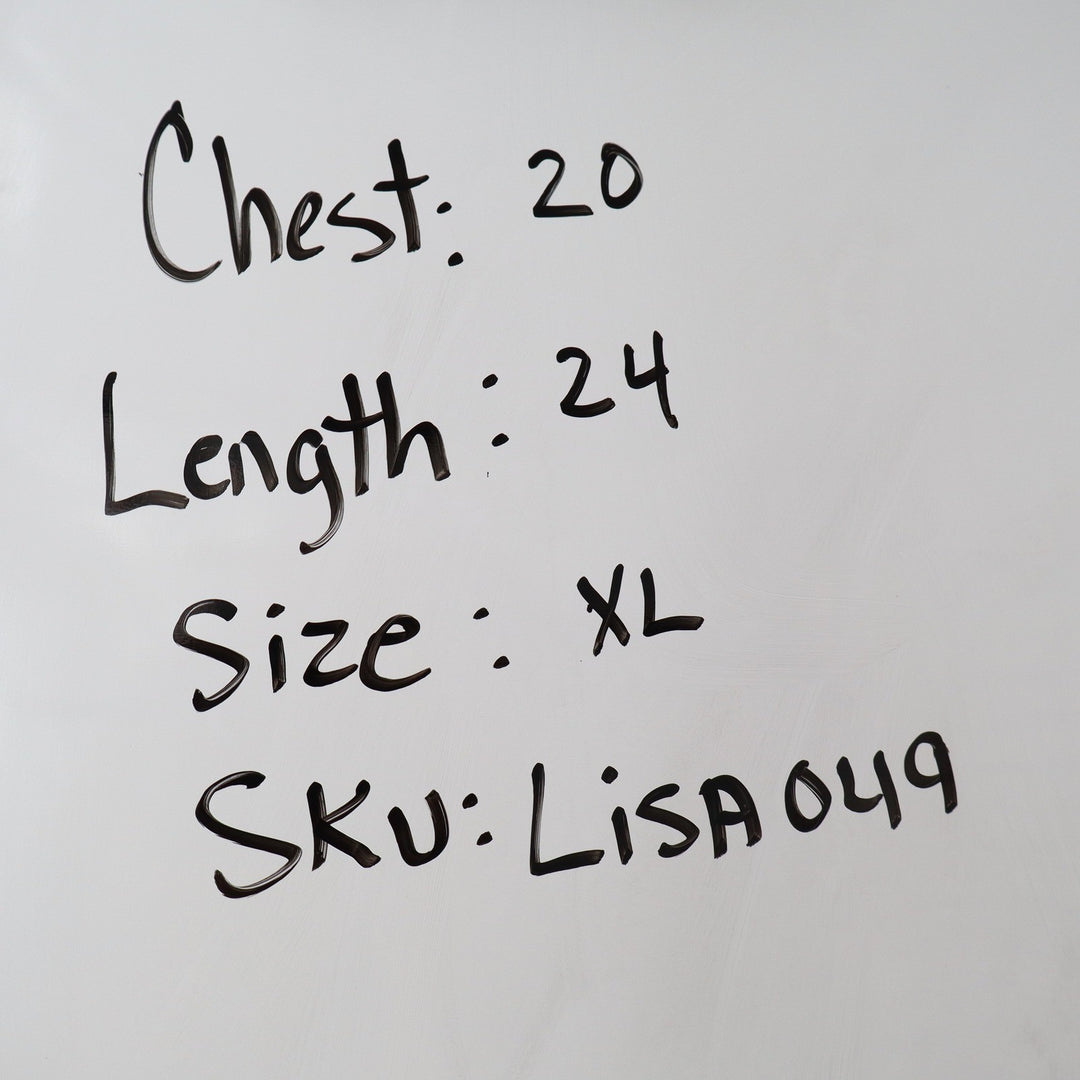 Chest: 20
Length: 24
Size: XL
SKU: LiSA049